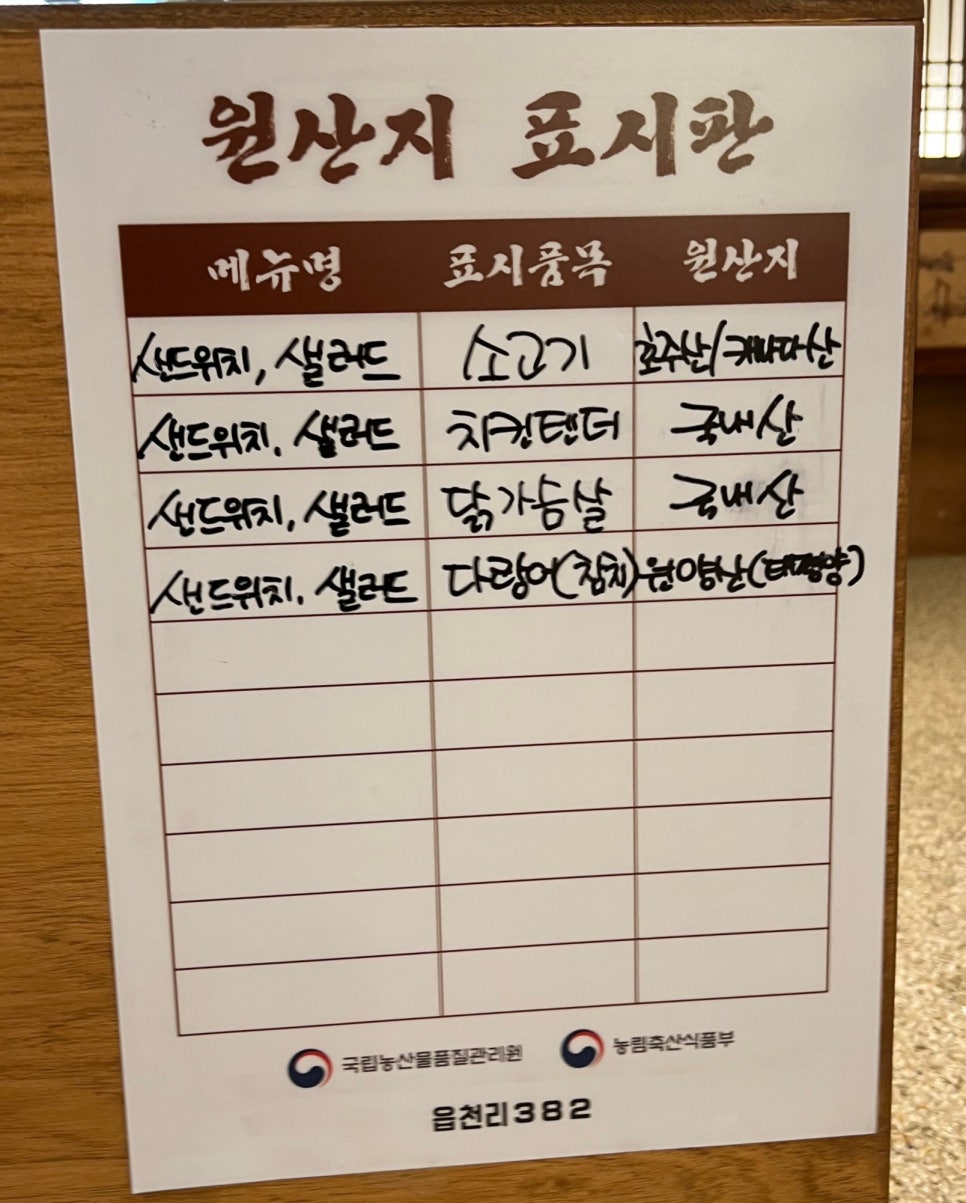 원산지 표시판
메뉴명 표시품목 원산지
샌드위치, 샐러드 소고기 호주산/캐나다산
샌드위치, 샐러드 치킨텐더 국내산
샌드위치, 샐러드 닭가슴살 국내산
샌드위치, 샐러드 다랑어(참치) 원양산(태평양)
국립농산물품질관리원 농림축산식품부
읍천리382